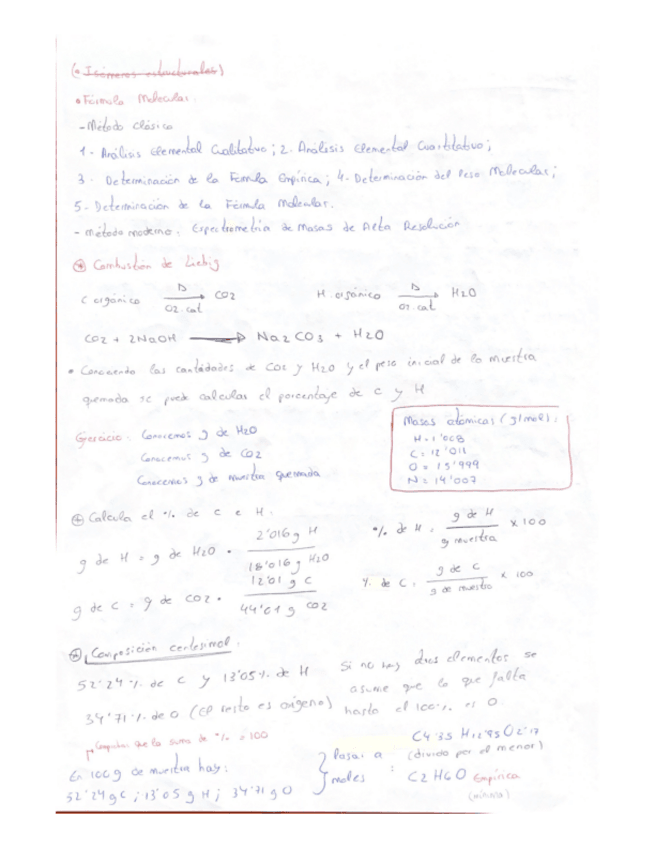 (• Isómeros estructurales)
• Fórmula Molecular:
- Método Clásico
1- Análisis Elemental Cualitativo; 2- Análisis Elemental Cuantitativo;
3- Determinación de la Fórmula Empírica; 4- Determinación del Peso Molecular;
5- Determinación de la Fórmula Molecular.
- Método moderno: Espectrometría de Masas de Alta Resolución
* Combustión de Liebig
C orgánico Δ O2 cat CO2 H orgánico Δ O2 cat H2O
CO2 + 2NaOH → Na2CO3 + H2O
• Conociendo las cantidades de CO2 y H2O y el peso inicial de la muestra
quemada se puede calcular el porcentaje de C y H
Masas atómicas (g/mol):
H = 1'008
C = 12'011
O = 15'999
N = 14'007
Ejercicio: Conocemos g de H2O
Conocemos g de CO2
Conocemos g de muestra quemada
* Calcula el % de C e H:
g de H = g de H2O • 2'016 g H / 18'016 g H2O
% de H = g de H / g muestra x 100
g de C = g de CO2 • 12'01 g C / 44'01 g CO2
% de C = g de C / g de muestra x 100
* Composición centesimal:
52'24 % de C y 13'05 % de H
34'71 % de O (el resto es oxígeno)
Si no hay otros elementos se
asume que lo que falta
hasta el 100% es O
Comprobar que la suma de % = 100
En 100g de muestra hay:
52'24 g C; 13'05 g H; 34'71 g O
Pasar a
moles :
C4'35 H12'95 O2'17
(divido por el menor)
C2H6O Empírica
(mínima)